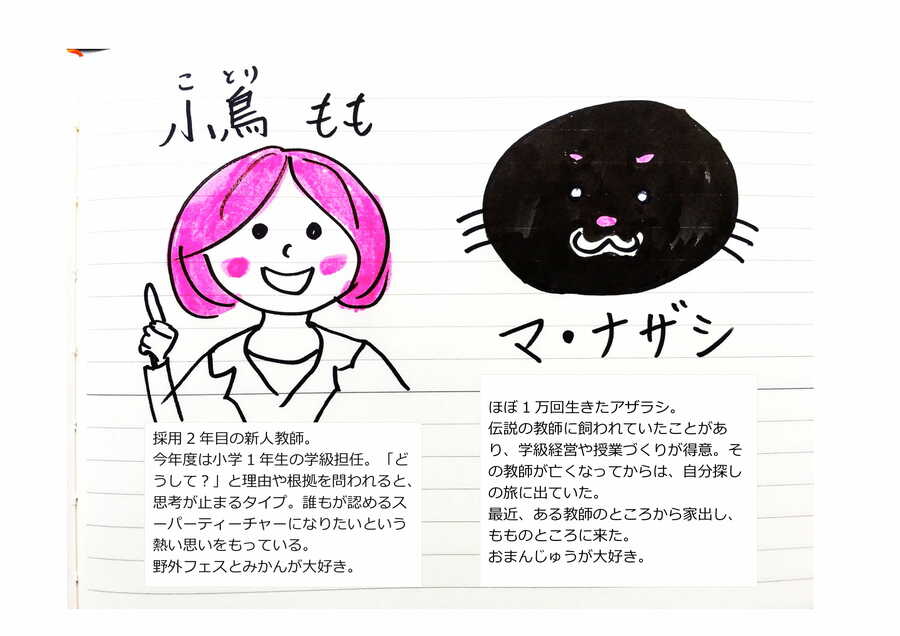 ことり
小鳥 もも
採用2年目の新人教師。
今年度は小学1年生の学級担任。「ど
うして?」と理由や根拠を問われると、
思考が止まるタイプ。誰もが認めるス
ーパーティーチャーになりたいという
熱い思いをもっている。
野外フェスとみかんが大好き。
マ・ナザシ
ほぼ1万回生きたアザラシ。
伝説の教師に飼われていたことがあ
り、学級経営や授業づくりが得意。そ
の教師が亡くなってからは、自分探し
の旅に出ていた。
最近、ある教師のところから家出し、
もものところに来た。
おまんじゅうが大好き。